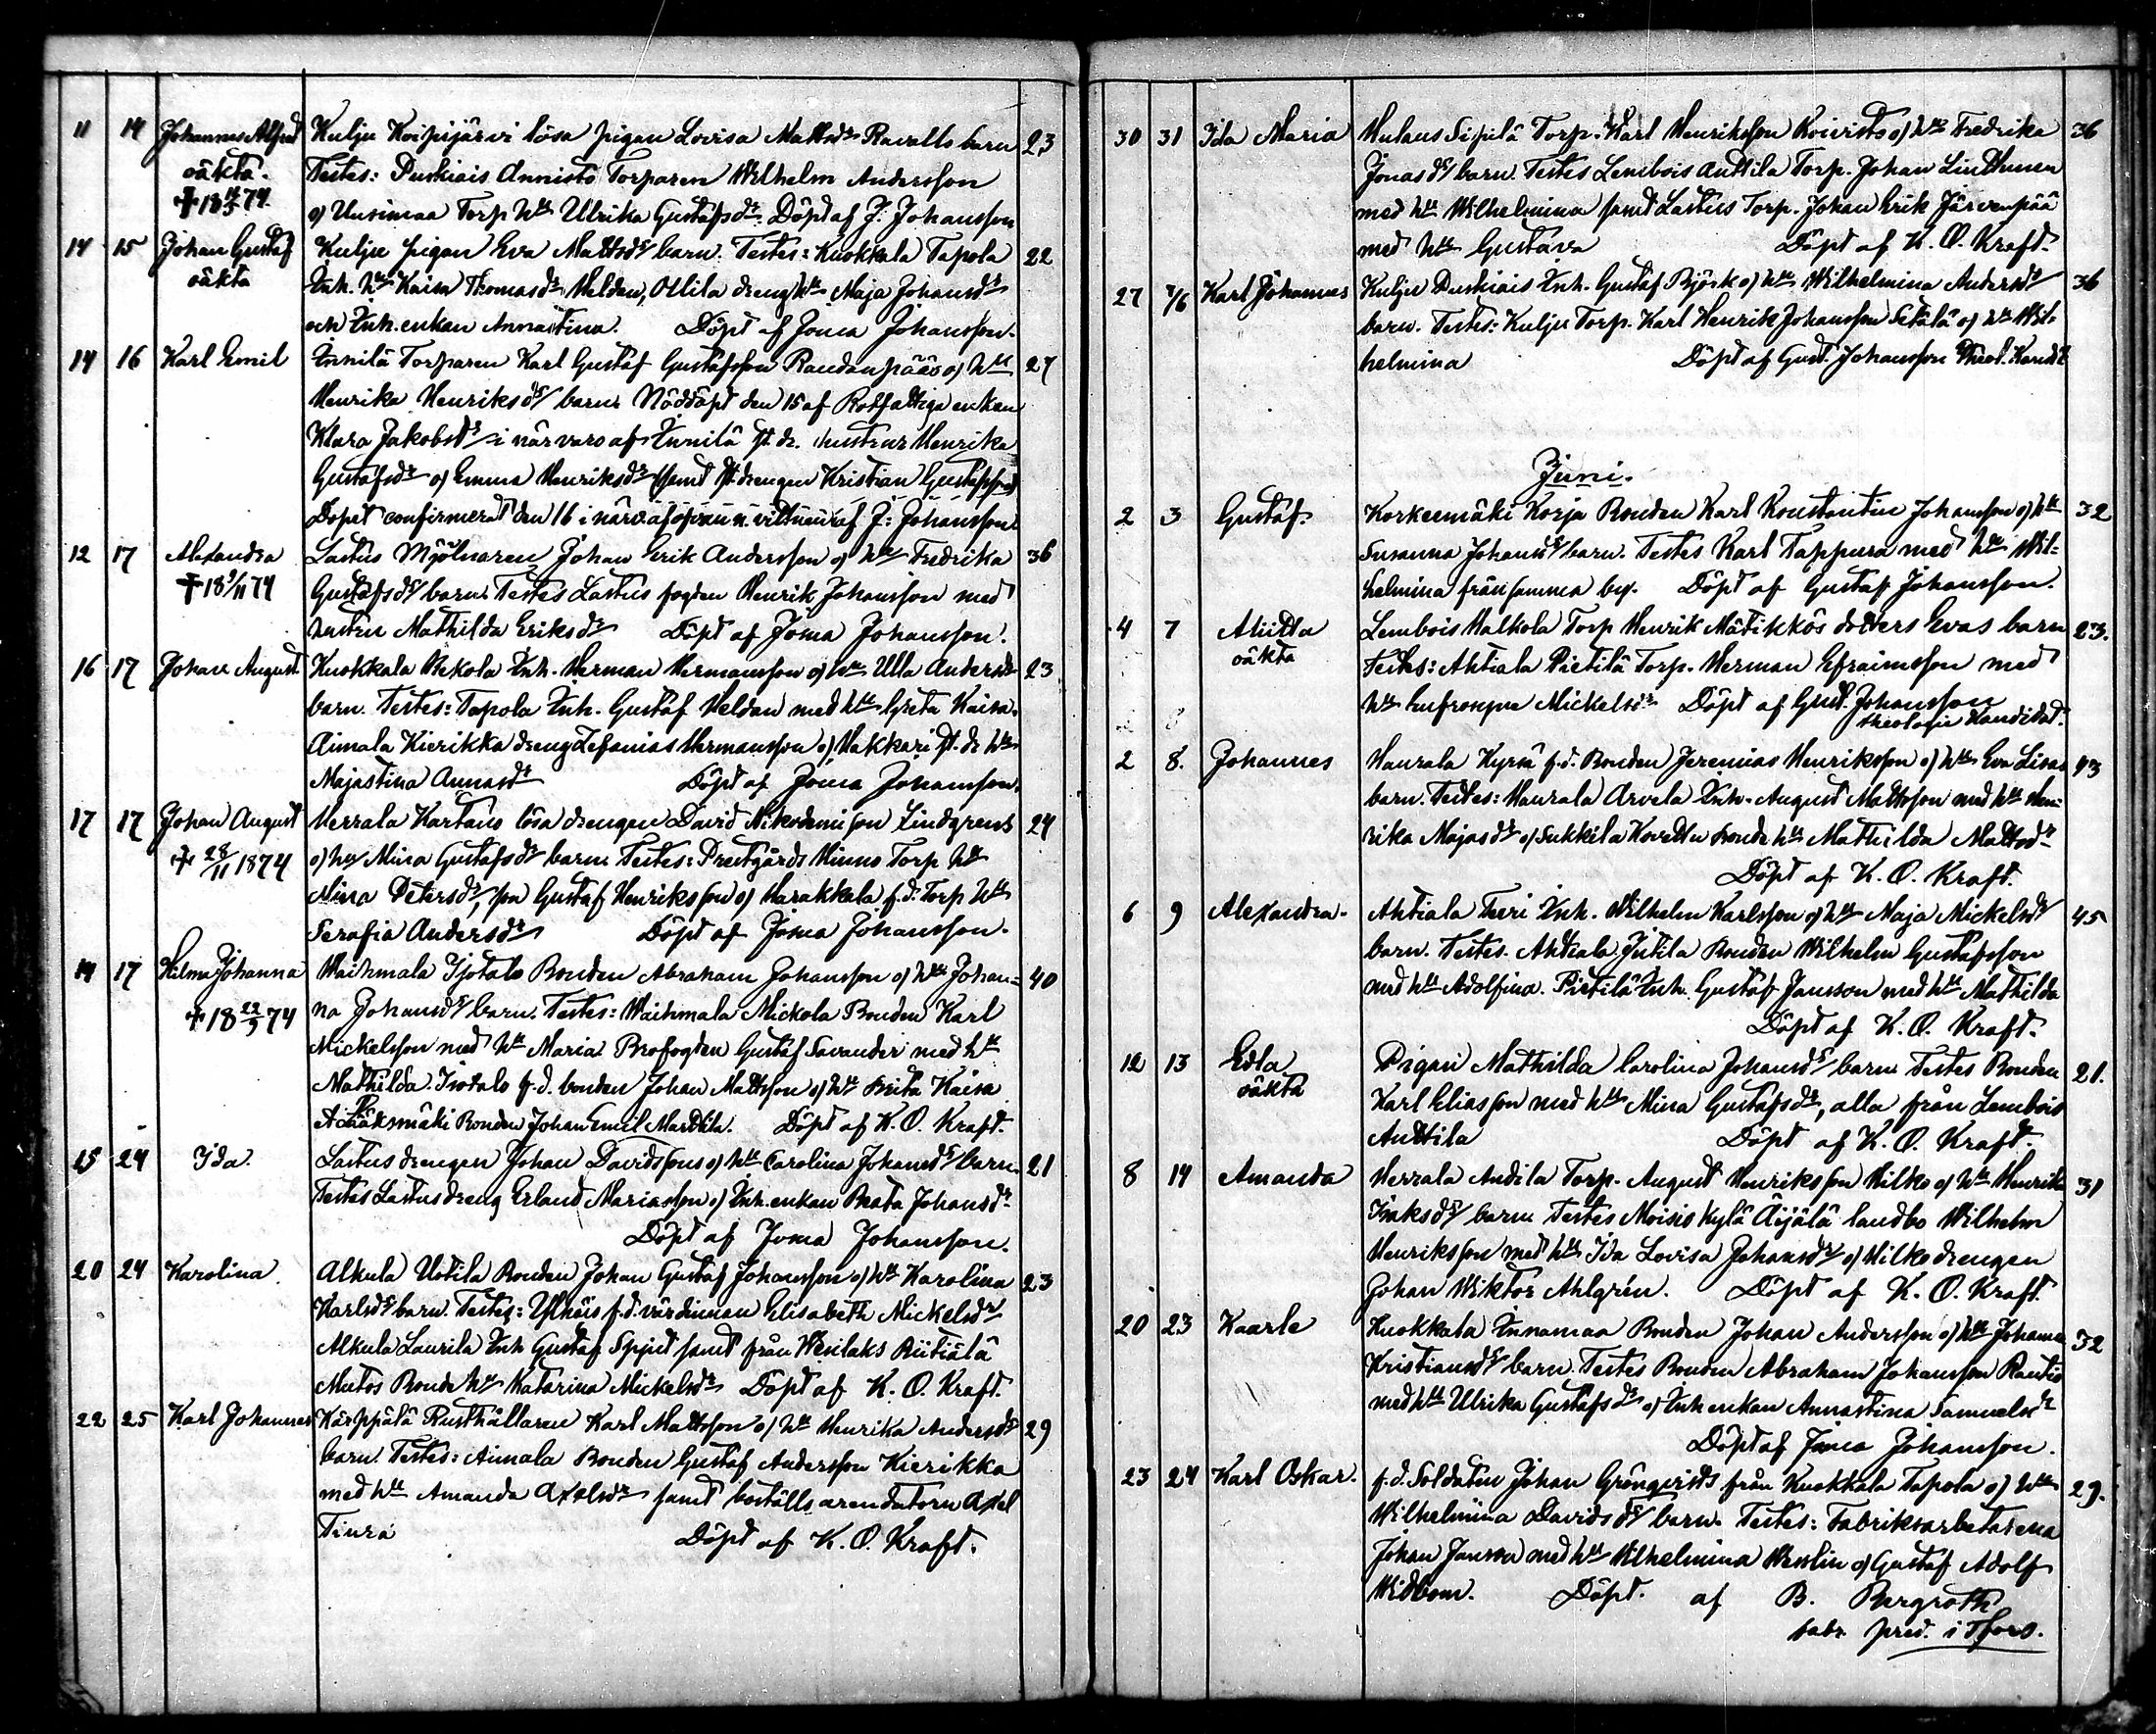 11 14 Johannes Alfred Kulju Koipijärvi lösa pigan Lovisa Mattsdr barn 23
oäkta. Testes: Puskiais Annisto Torparen Wilhelm Andersson
of Uusimaa Torp hu Ulrika Gustafsdr. Döpt af J. Johansson
14 15 Johan Gustaf Kulju pigan Eva Mattsdrs barn. Testes: Kuokkala Tapola 22
oäkta Inh. hu Kaisa Thomasdr Heldan, Ollila dreng hu Maja Johansdr
och Inh. enkan Annastina. Döpt af Joma Johansson.
14 16 Karl Emil Innilä Torparen Karl Gustaf Gustafsson Randanpääs of hu 27
Henrika Henriksdrs barn Nöddöpt den 15 af Rotfattiga enkan
Klara Jakobsdr i närvaro af Innilä st. dr. hustrur Henrika
Gustafsdr of Emma Henriksdr samt st. drengen Kristian Gustafsson
Dopet confirmerat den 16 i närv. af af J: Johansson
12 17 Alexandra Lastus Mjölnaren Johan Erik Andersson of hu Fredrika 36
† 18 9/11 74 Gustafsdrs barn Testes Lastus fogden Henrik Johansson med
hustru Mathilda Eriksdr Döpt af Joma Johansson.
16 17 Johan August Kuokkala Rekola Inh. Herman Hermansson of hu Ulla Andersdrs 23
barn. Testes: Tapola Inh. Gustaf Heldan med hu Greta Kaisa.
Aimala Kierikka dreng Zefanias Hermansson of Hakkari st. dr hu
Majastina Annasdr Döpt af Joma Johansson.
17 17 Johan August Herrala Kartano lösa drengen David Nikodemison Lindgrens 24
† 28/11 1874 of hu Mina Gustafsdrs barn Testes: Prestgårds Hinno Torp hu
Mina Petersdr, son Gustaf Henriksson of Harakkala f.d. Torp hu
Serafia Andersdr Döpt af Joma Johansson.
14 17 Hilma Johanna Waihmala Isotalo Bonden Abraham Johansson of hu Johan= 40
† 18 22/9 74 na Johansdrs barn. Testes: Waihmala Mickola Bonden Karl
Mickelsson med hu Maria Brofogden Gustaf Savander med hu
Mathilda. Isotalo f.d. bonden Johan Mattsson of hu Brita Kaisa
Bonden Johan Emil Marttila. Döpt af K. O. Kraft.
15 24 Ida. Lastus drengen Johan Davidssons of hu Carolina Johansdrs barn. 21
Testes Lastus dreng Erland Mariasson of Inh. enkan Beata Johansdr
Döpt af Joma Johansson.
20 24 Karolina Alkula Uotila Bonden Johan Gustaf Johansson of hu Karolina 23
Karlsdrs barn. Testes: f.d. värdinnan Elisabeth Mickelsdr
Alkula Laurila Inh Gustaf Spjut samt från Wesilaks Riitiälä
Mutos Bonde hu Katarina Mickelsdr Döpt af K. O. Kraft.
22 25 Karl Johannes Kärppälä Rusthållaren Karl Mattsson of hu Henrika Andersdrs 29
barn. Testes: Aimala Bonden Gustaf Andersson Kierikka
med hu Amanda Axelsdr samt boställs arendatorn Axel
Tiura Döpt af K. O. Kraft.
30 31 Ida Maria Hulaus Sipilä Torp. Karl Henriksson Koivisto of hu Fredrika 36
Jonasdrs barn. Testes Lembois Anttila Torp. Johan Lindtman
med hu Wilhelmina samt Lastus Torp. Johan Erik Järvenpää
med hu Gustava Döpt af K. O. Kraft.
27 7/6 Karl Johannes Kulju Puskiais Inh. Gustaf Björk of hu Wilhelmina Andersdr 36
barn. Testes: Kulju Torp. Karl Henrik Johansson Setälä of hu Wil=
helmina Döpt af Gust. Johansson Theol. Kandt
Juni.
2 3 Gustaf. Korkeemäki Korja Bonden Karl Konstantin Johansson of hu 32
Susanna Johansdrs barn. Testes Karl Tappura med hu Wil=
helmina från samma by. Döpt af Gustaf Johansson.
4 7 oäkta Lembois Halkola Torp Henrik Mätikkös dotters Evas barn 23.
Testes: Ahtiala Pietilä Torp. Herman Efraimsson med
hu Eufrosyne Mickelsdr Döpt af Gust. Johansson
theologie Kandidat.
2 8. Johannes Haurala Kyrsä f.d. Bonden Jeremias Henriksson of hu Eva Lisas 43
barn. Testes: Haurala Arvela Inh. August Mattsson med hu Hen=
rika Majasdr of Sukkila bonde hu Mathilda Mattsdr
Döpt af K. O. Kraft.
6 9 Alexandra. Ahtiala Teeri Inh. Wilhelm Karlsson of hu Maja Mickelsdrs 45
barn. Testes. Ahtiala Jutila Bonden Wilhelm Gustafsson
med hu Adolfina. Pietilä Inh. Gustaf Jansson med hu Mathilda
Döpt af K. O. Kraft.
12 13 Edla Pigan Mathilda Carolina Johansdrs barn Testes Bonden 21.
oäkta Karl Eliasson med hu Mina Gustafsdr, alla från Lembois
Anttila Döpt af K. O. Kraft.
8 14 Amanda Herrala Andila Torp. August Henriksson Hilko of hu Henrika 31
Isaksdrs barn Testes Moisio Kylä Äijälä landbo Wilhelm
Henriksson med hu Ida Lovisa Johansdr of Hilko drengen
Johan Wiktor Ahlgrén. Döpt af K. O. Kraft.
20 23 Kaarle Kuokkala Innamaa Bonden Johan Andersson of hu Johanna 32
Kristiansdrs barn. Testes Bonden Abraham Johansson Rantio
med hu Ulrika Gustafsdr of Inh enkan Annastina Samuelsdr
Döpt af Joma Johansson.
23 24 Karl Oskar. f.d. Soldaten Johan Grönqvists från Kuokkala Tapola of hu 29.
Wilhelmina Davidsdrs barn. Testes: Fabriksarbetarena
Johan Jansson med hu Wilhelmina Weslin of Gustaf Adolf
Widbom. Döpt. af B. Bergroth
fabr. pred. i Tfors.